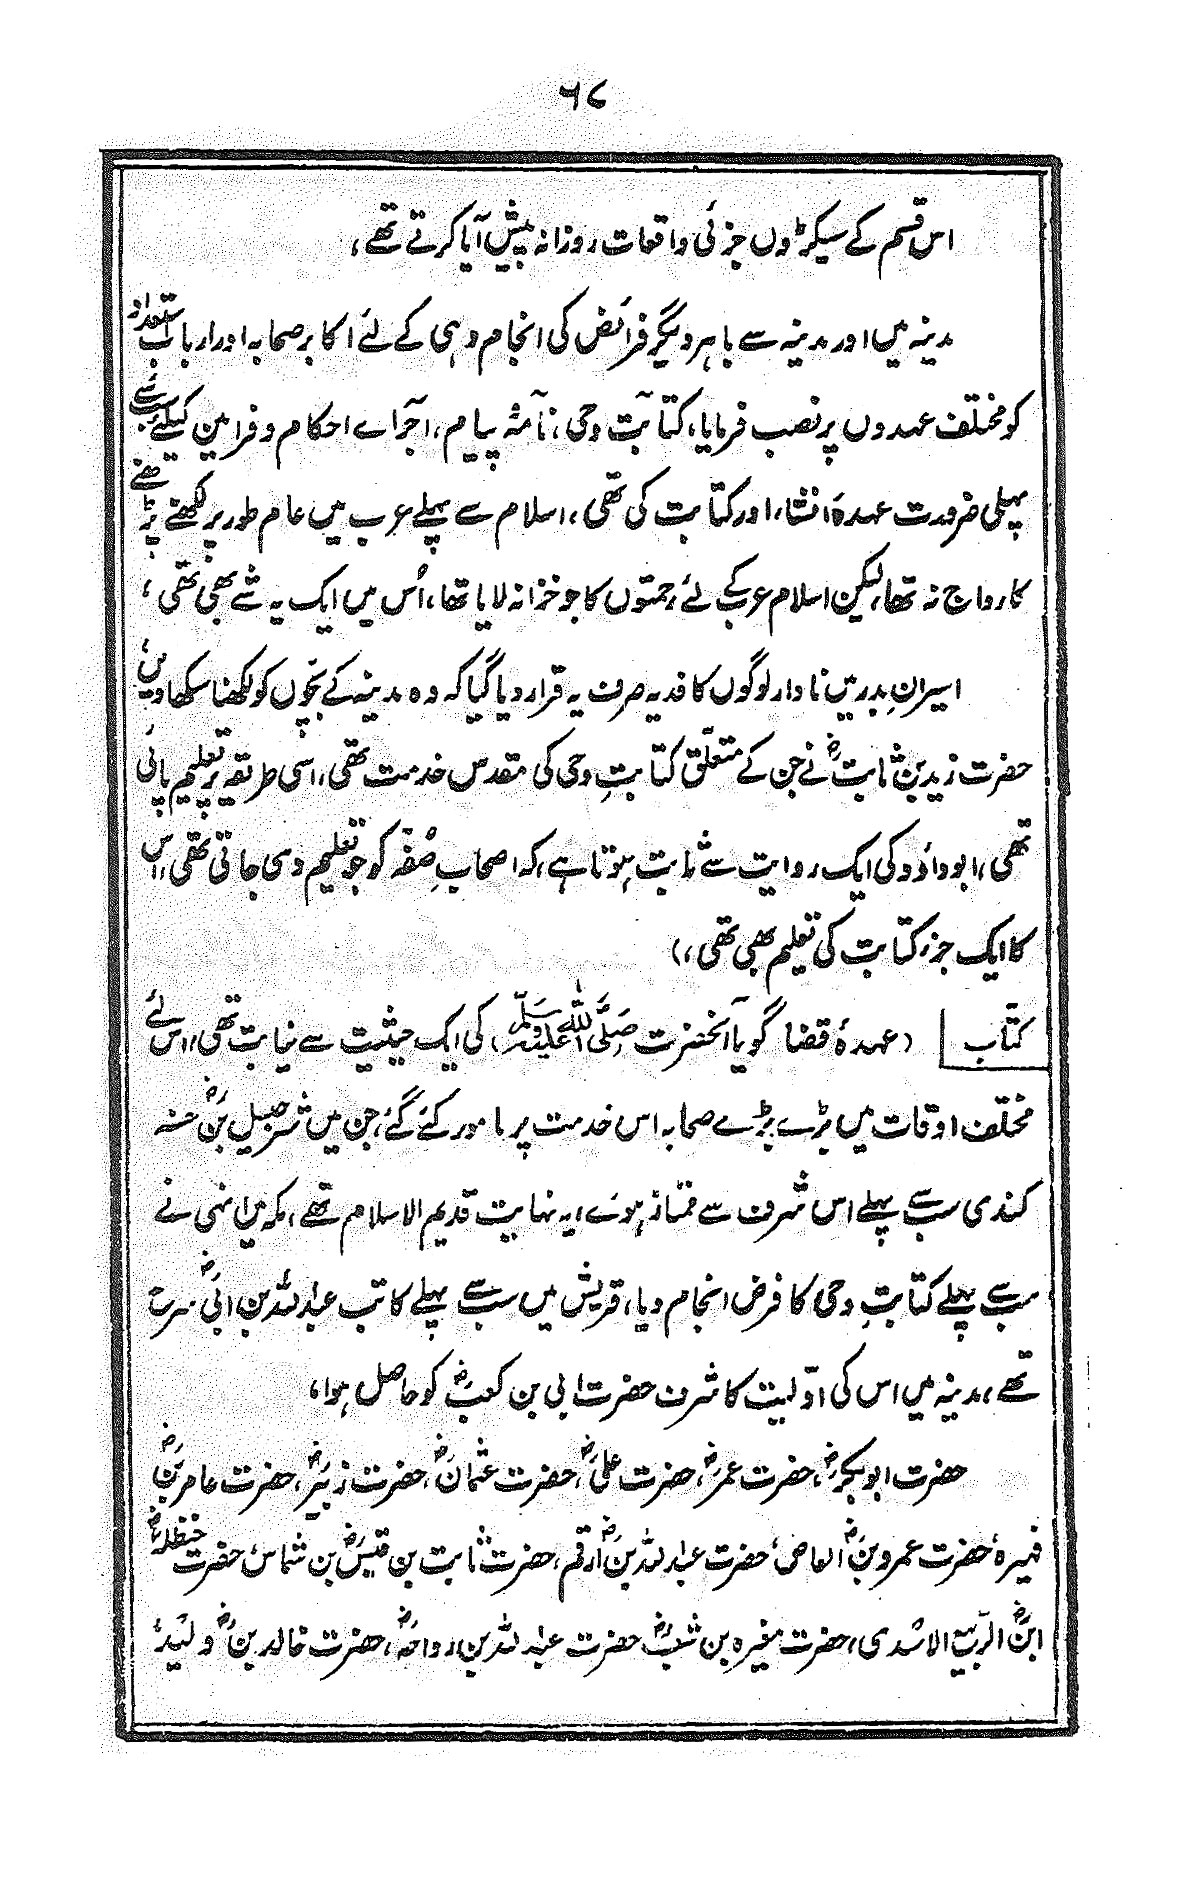 ۶۸
اس قسم کے سیکڑوں جزئی واقعات روزانہ پیش آیا کرتے تھے،
مدینہ میں اور مدینہ سے باہر دیگر فرائض کی انجام دہی کے لئے اکابر صحابہ اور ارباب استعداد
کو مختلف عہدوں پر نصب فرمایا، کتابت وحی، نامہ پیام، اجراے احکام و فرامین کیلئے سب سے
پہلی ضرورت عہدۂ انشا، اور کتابت کی تھی، اسلام سے پہلے عرب میں عام طور پر لکھنے پڑھنے
کا رواج نہ تھا، لیکن اسلام عرب کے لئے رحمتوں کا جو خزانہ لایا تھا، اُس میں ایک یہ شے بھی تھی،
اسیرانِ بدر میں نادار لوگوں کا فدیہ صرف یہ قرار دیا گیا کہ وہ مدینہ کے بچوں کو لکھنا سکھا دیں،
حضرت زید بن ثابتؓ نے جن کے متعلق کتابتِ وحی کی مقدس خدمت تھی، اسی طریقہ پر تعلیم پائی
تھی، ابوداؤد کی ایک روایت سے ثابت ہوتا ہے، کہ اصحابِ صُفّہ کو جو تعلیم دی جاتی تھی، اس
کا ایک جزء کتابت کی تعلیم بھی تھی،)
کتّاب (عہدۂ قضا گویا آنحضرت (صَلَّی اللہ عَلَیْہِ وَسَلَّم) کی ایک حیثیت سے نیابت تھی، اس لئے
مختلف اوقات میں بڑے بڑے صحابہ اس خدمت پر مامور کئے گئے، جن میں شرحبیلؓ بن حسنہ
کندی سب سے پہلے اس شرف سے ممتاز ہوے، یہ نہایت قدیم الاسلام تھے، مکہ میں انہی نے
سب سے پہلے کتابتِ وحی کا فرض انجام دیا، قریش میں سب سے پہلے کاتب عبداللہ بن ابیؓ سرح
تھے، مدینہ میں اس کی اوّلیت کا شرف حضرت ابی بن کعبؓ کو حاصل ہوا،
حضرت ابوبکرؓ، حضرت عمرؓ، حضرت علیؓ، حضرت عثمانؓ، حضرت زبیرؓ، حضرت عامرؓ بن
فہیرہ، حضرت عمرو بنؓ العاص، حضرت عبداللہ بنؓ ارقم، حضرت ثابت بن قیسؓ بن شماس، حضرت حنظلہؓ
ابنؓ الربیع الاسدی، حضرت مغیرہ بن شعبہؓ حضرت عبداللہ بن رواحہؓ، حضرت خالد بنؓ ولید،